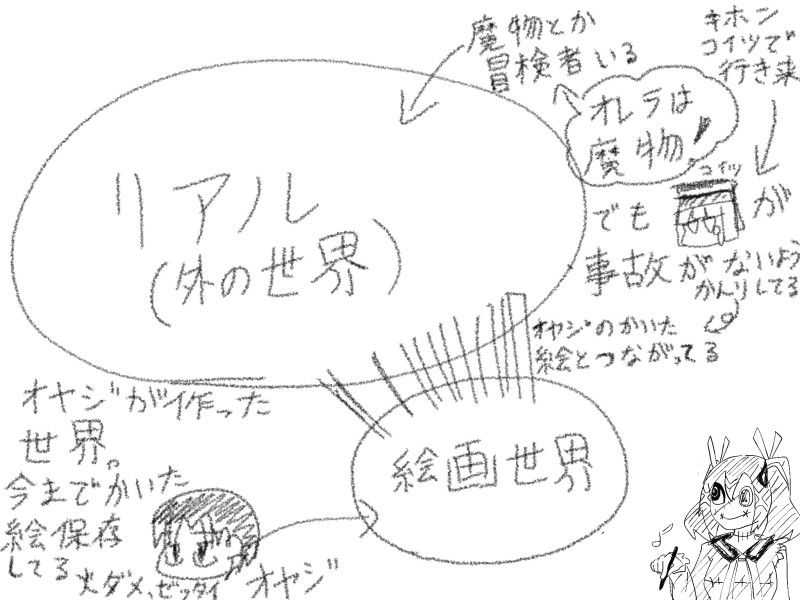 魔物とか
冒検者いる
キホン
コイツで
行き来
オレラは
魔物!
コイツ
でも
が
事故がないよう
かんりしてる
リアル
(外の世界)
オヤジのかいた
絵とつながってる
オヤジが作った
世界。
今までかいた
絵保存
してる
火ダメ、ゼッタイ
オヤジ
絵画世界